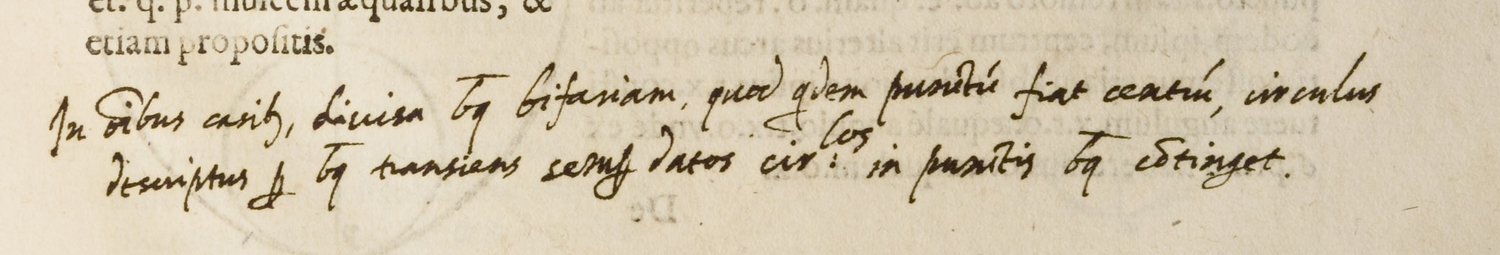 et. q. p. inuicem æqualibus, &
etiam propositis.
In oĩbus casibꝫ, diuisa bq̄ bifariam, quod qdem punctũ fiat centrũ, circulus
descriptus ꝑ bq̄ transiens semꝑ datos cir:los in punctis bq̄ cõtinget.
De